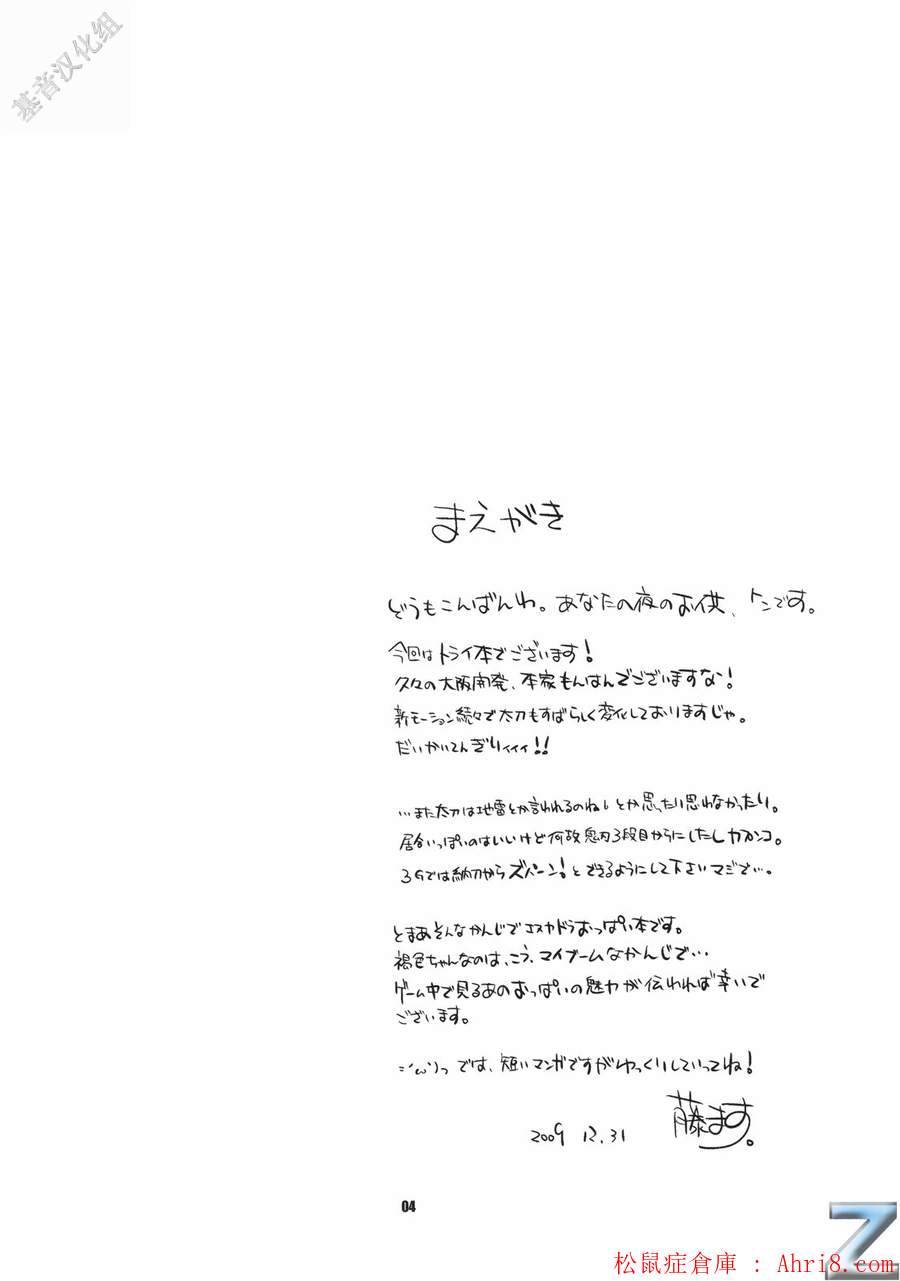 基音汉化组
まえがき
どうもこんばんわ。あなたの夜のお供、トンです。
今回はトライ本でございます！
久々の大阪開発、本家もんはんでございますな！
新モーション続々で太刀もすばらしく変化しておりますじゃ。
だいかいてんぎりィィィ！！
…また太刀は地雷とか言われるのね、とか思ったり思わなかったり。
居合いっぽいのはいいけど何故鬼刃3段目からにしたしカプンコ。
3Gでは納刀からズバーン！とできるようにして下さいマジで…。
とまあそんなかんじでエスカドラおっぱい本です。
褐色ちゃんなのは、こう、マイブームなかんじで…
ゲーム中で見るあのおっぱいの魅力が伝われば幸いで
ございます。
では、短いマンガですがゆっくりしていってね！
2009 12.31
藤ます。
04
Z
松鼠症倉庫 : Ahri8.com